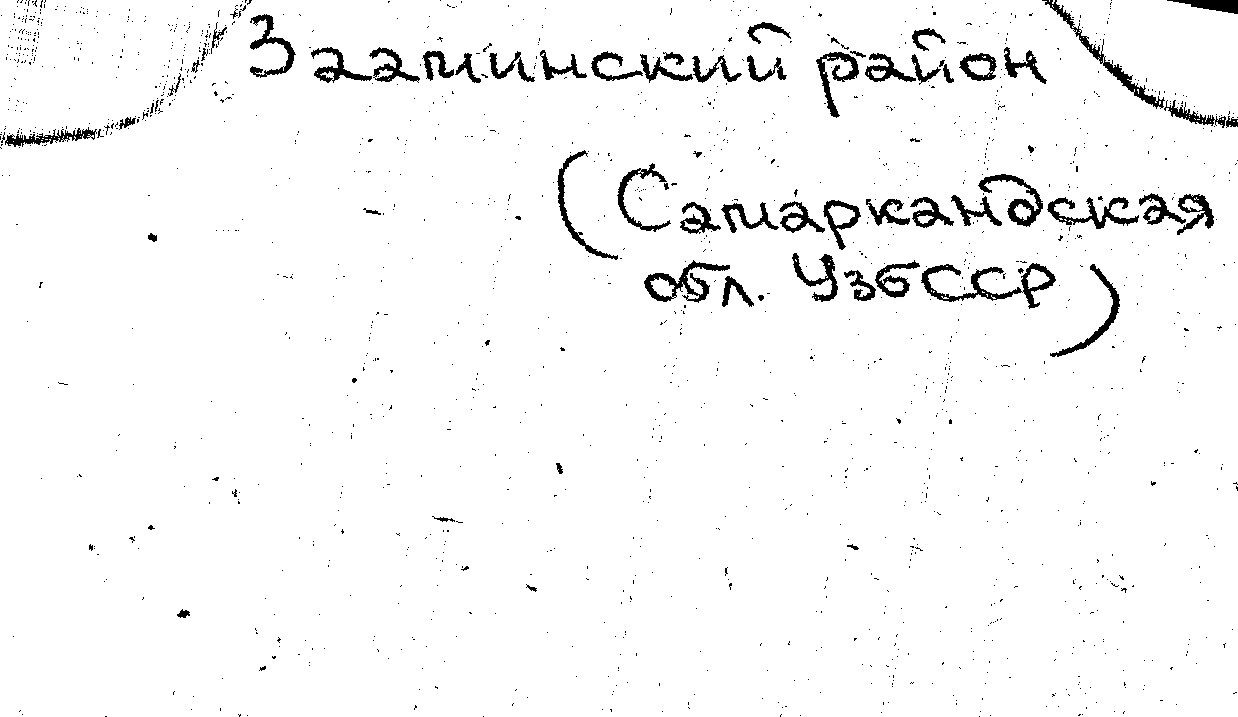 Зааминский район
(Самаркандская
обл. УзбССР)